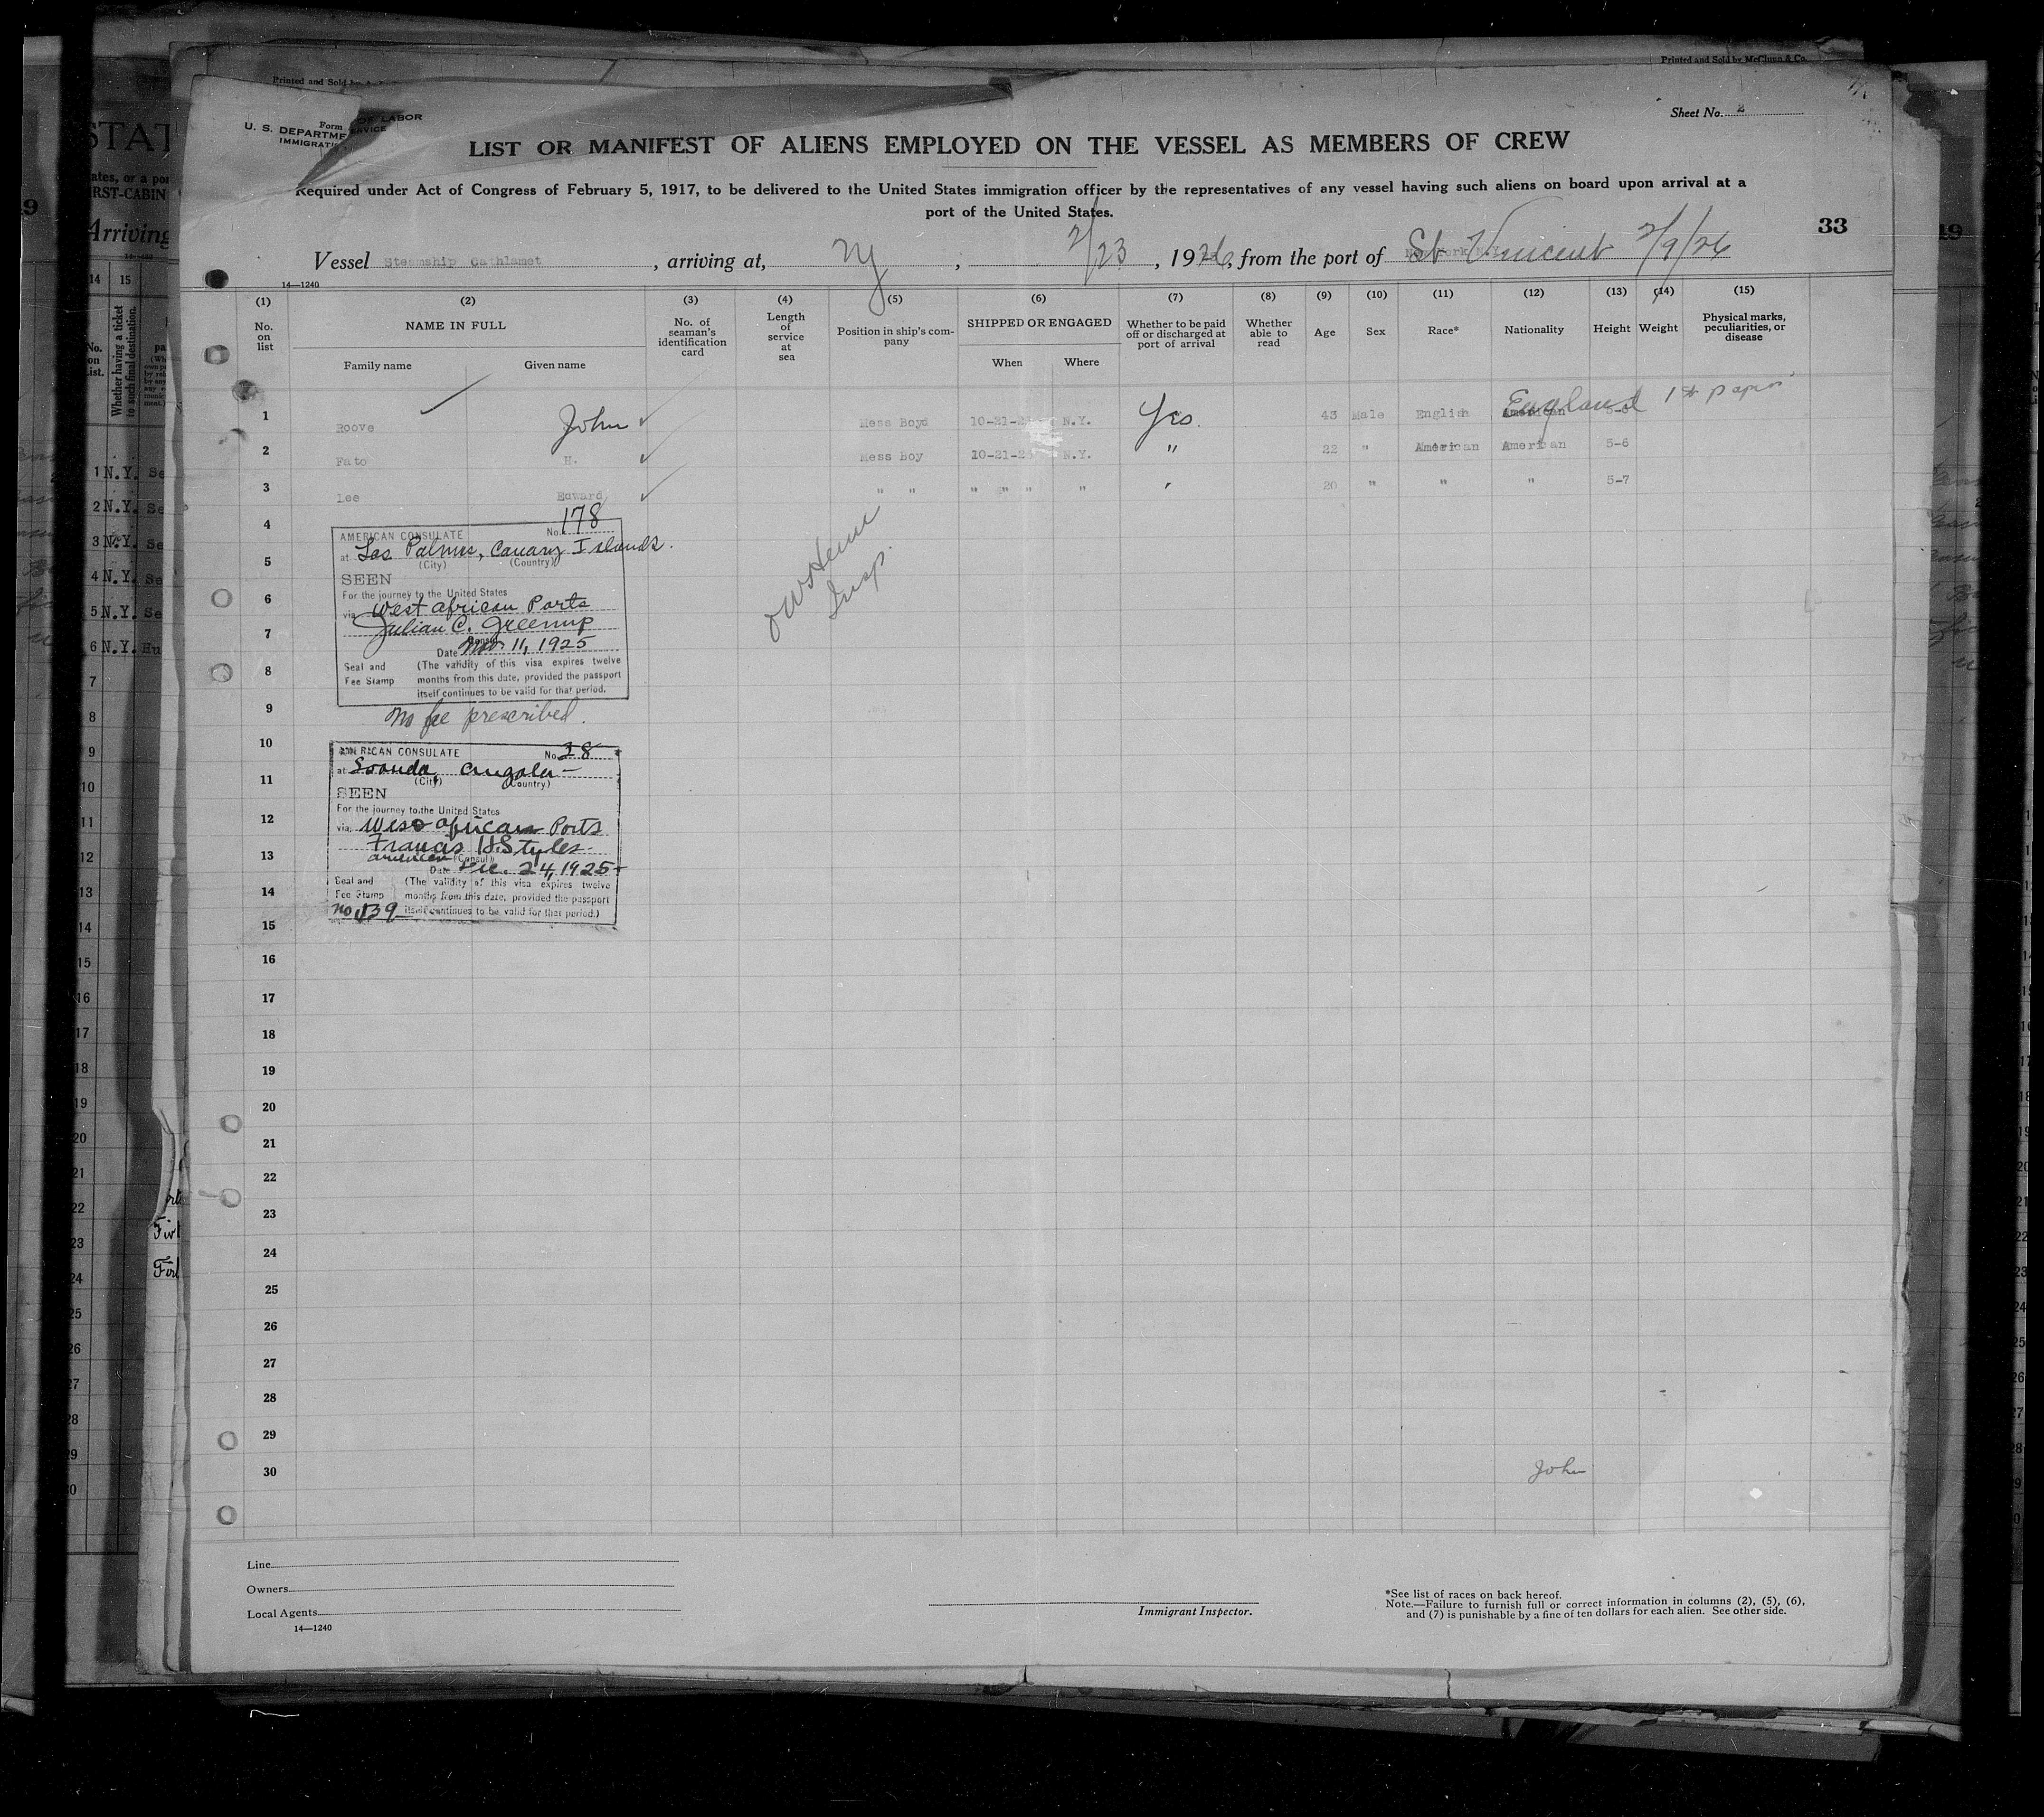 Printed and Sold by
Printed and Sold by McClunn & Co.
Form
U. S. DEPARTME OF LABOR
IMMIGRATI SERVICE
Sheet No. 2
LIST OR MANIFEST OF ALIENS EMPLOYED ON THE VESSEL AS MEMBERS OF CREW
Required under Act of Congress of February 5, 1917, to be delivered to the United States immigration officer by the representatives of any vessel having such aliens on board upon arrival at a
port of the United States.
33
Vessel Steamship Cathlamet, arriving at, NY, 2/23, 1926, from the port of St Vincent 2/9/26
14—1240
(1) (2) (3) (4) (5) (6) (7) (8) (9) (10) (11) (12) (13) (14) (15)
No. on list
NAME IN FULL
Family name Given name
No. of seaman's identification card
Length of service at sea
Position in ship's company
SHIPPED OR ENGAGED
When Where
Whether to be paid off or discharged at port of arrival
Whether able to read
Age
Sex
Race*
Nationality
Height
Weight
Physical marks, peculiarities, or disease
1 Roove John Mess Boyd N.Y. Yes. 43 Male English England 1st paper
2 Fato H. Mess Boy 10-21-2 N.Y. " 22 " American American 5-6
3 Lee Edward " " " " " " 20 " " " 5-7
4
AMERICAN CONSULATE No. 178
at Las Palmas, Canary Islands.
(City) (Country)
5
SEEN
For the journey to the United States
6
via West African Ports
Julian C. Greenup
7
Date Nov 11, 1925
Seal and Fee Stamp
(The validity of this visa expires twelve
8
months from this date, provided the passport
itself continues to be valid for that period.
9
No fee prescribed.
Insp.
10
AMERICAN CONSULATE No. 28
at Loanda, Angola
11
(City) (Country)
SEEN
For the journey to the United States
12
via West African Ports
Francis H. Styles
13
American (Consul)
Date Dec. 24, 1925
Seal and Fee Stamp
(The validity of this visa expires twelve
14
months from this date, provided the passport
No. 139 itself continues to be valid for that period.)
15
16
17
18
19
20
21
22
23
24
25
26
27
28
29
30
John
Line
Owners
Local Agents
14—1240
Immigrant Inspector.
*See list of races on back hereof.
Note.—Failure to furnish full or correct information in columns (2), (5), (6),
and (7) is punishable by a fine of ten dollars for each alien. See other side.